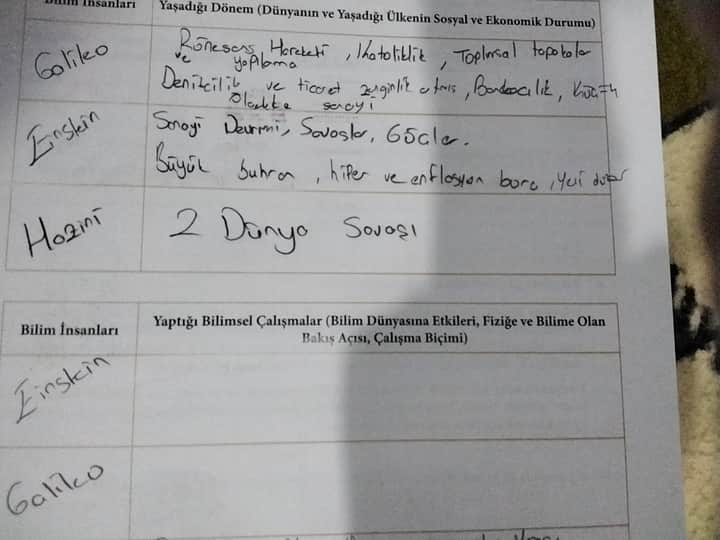 Bilim İnsanları
Yaşadığı Dönem (Dünyanın ve Yaşadığı Ülkenin Sosyal ve Ekonomik Durumu)
Galileo
Rönesans Hareketi, Katoliklik, Toplumsal
ve yapılama
Denizcilik ve ticaret zenginlik
ölçekte sanayi
Einstein
Sanayi Devrimi, Savaşlar, Göçler.
Büyük buhran, hiper ve enflasyon
Hazini
2 Dünya Savaşı
Bilim İnsanları
Yaptığı Bilimsel Çalışmalar (Bilim Dünyasına Etkileri, Fiziğe ve Bilime Olan
Bakış Açısı, Çalışma Biçimi)
Einstein
Galileo